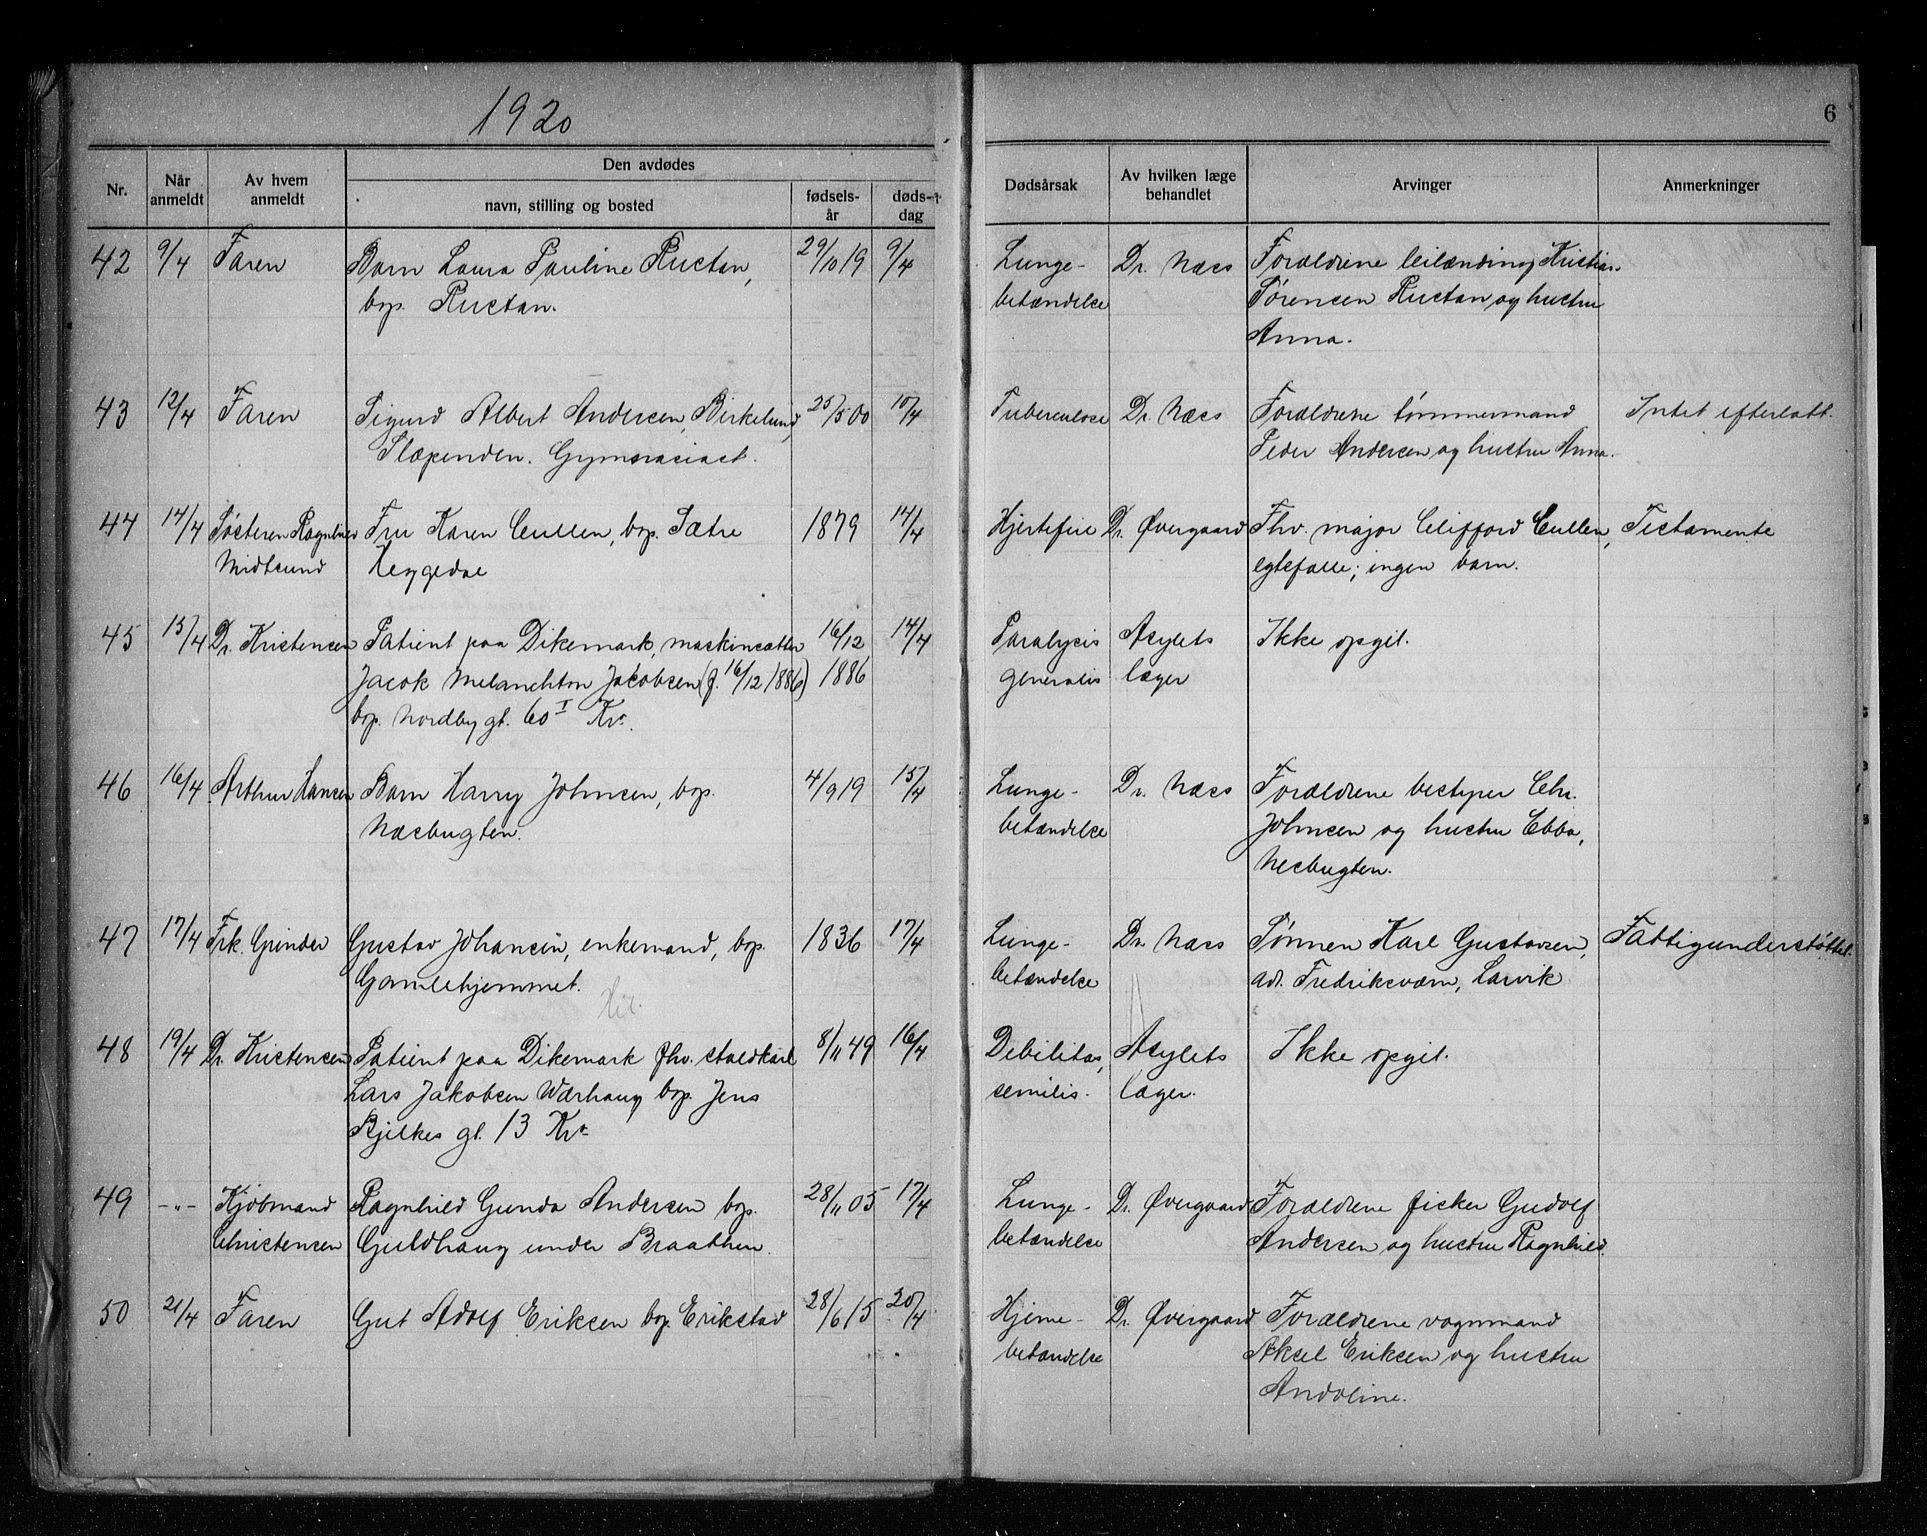 1920
6
Nr.
Når anmeldt
Av hvem anmeldt
Den avdødes
navn, stilling og bosted
fødsels-år
døds-dag
Dødsårsak
Av hvilken læge behandlet
Arvinger
Anmerkninger
42 9/4 Faren Barn Laura Pauline Rustan, 29/10 19 9/4 Lunge- Dr. Næss Forældrene leilænding Kristian
bop. Rustan. betændelse Sørensen Rustan og hustru
Anna.
43 12/4 Faren Sigurd Albert Andersen, Birkelund, 25/5 00 10/4 Tuberculose Dr. Næss Forældrene tømmermand Intet efterlatt.
Slæpenden. Gymnasiast. Peder Andersen og hustru Anna.
44 14/4 Søsteren Ragnhild Fru Karen Cullen, bop. Sætre 1879 14/4 Hjertefeil Dr. Øvergaard Fhv. major Clifford Cullen, Testamente
Midtsund Heggedal egtefælle; ingen barn.
45 15/4 Dr. Kristensen Patient paa Dikemark, maskinsætter 16/12 14/4 Paralysis Asylets Ikke opgit.
Jacob Melanchton Jacobsen (f. 16/12 1886) 1886 generalis læger
bop. Nordbygt. 60 I Kr.
46 16/4 Arthur Hansen Barn Harry Johnsen, bop. 4/9 19 15/4 Lunge- Dr. Næss Forældrene bestyrer Chr.
Næsbugten. betændelse Johnsen og hustru Ebba,
Nesbugten.
47 17/4 Frk. Grinder Gustav Johansen, enkemand, bop. 1836 17/4 Lunge- Dr. Næss Sønnen Karl Gustavsen, Fattigunderstøttet.
Gamlehjemmet. betændelse adr. Fredriksværn, Larvik
48 19/4 Dr. Kristensen Patient paa Dikemark fhv. staldkarl 8/11 49 16/4 Debilitas Asylets Ikke opgit.
Lars Jakobsen Wærhaug bop. Jens senilis. læger.
Bjelkes gt. 13 Kr.
49 -"- Kjøbmand Ragnhild Gunda Andersen bop. 28/11 05 17/4 Lunge- Dr. Øvergaard Forældrene fisker Gudolf
Christensen Guldhaug under Braathen. betændelse Andersen og hustru Ragnhild.
50 21/4 Faren Gut Adolf Eriksen bop. Erikstad 28/6 15 20/4 Hjerne- Dr. Øvergaard Forældrene vognmand
betændelse Aksel Eriksen og hustru
Andoline.